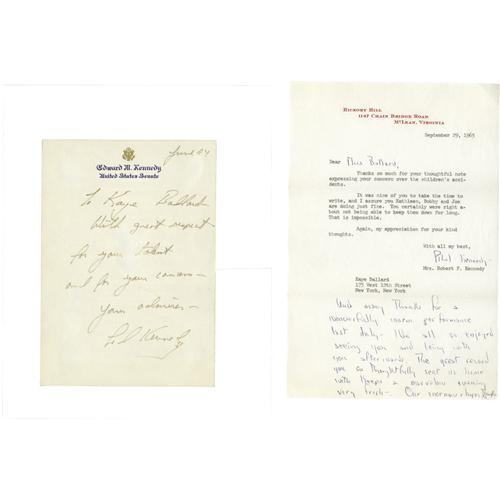 June 24
Edward M. Kennedy
United States Senate
To Kaye Ballard
With great respect
for your talent
and for your concern —
Your admirer —
Ted Kennedy
HICKORY HILL
1147 CHAIN BRIDGE ROAD
MCLEAN, VIRGINIA
September 29, 1965
Dear Miss Ballard,
Thanks so much for your thoughtful note
expressing your concern over the children's acci-
dents.
It was nice of you to take the time to
write, and I assure you Kathleen, Bobby and Joe
are doing just fine. You certainly were right a-
bout not being able to keep them down for long.
That is impossible.
Again, my appreciation for your kind
thoughts.
With all my best,
Ethel Kennedy
Mrs. Robert F. Kennedy
Kaye Ballard
175 West 12th Street
New York, New York
And many thanks for a
wonderfully warm performance
last July — We all so enjoyed
seeing you and being with
you afterwards. The great record
you so thoughtfully sent us home
with keeps a marvelous evening
very fresh — Our enormous thanks